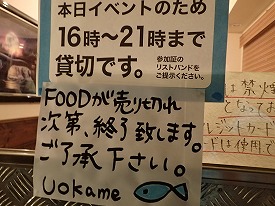 本日イベントのため
16時～21時まで
貸切です。
参加証の
リストバンドを
ご提示ください。
FOODが売り切れ
次第、終了致します。
ご了承下さい。
Uokame
は禁煙
となってお
レジットカード
ドは使用で